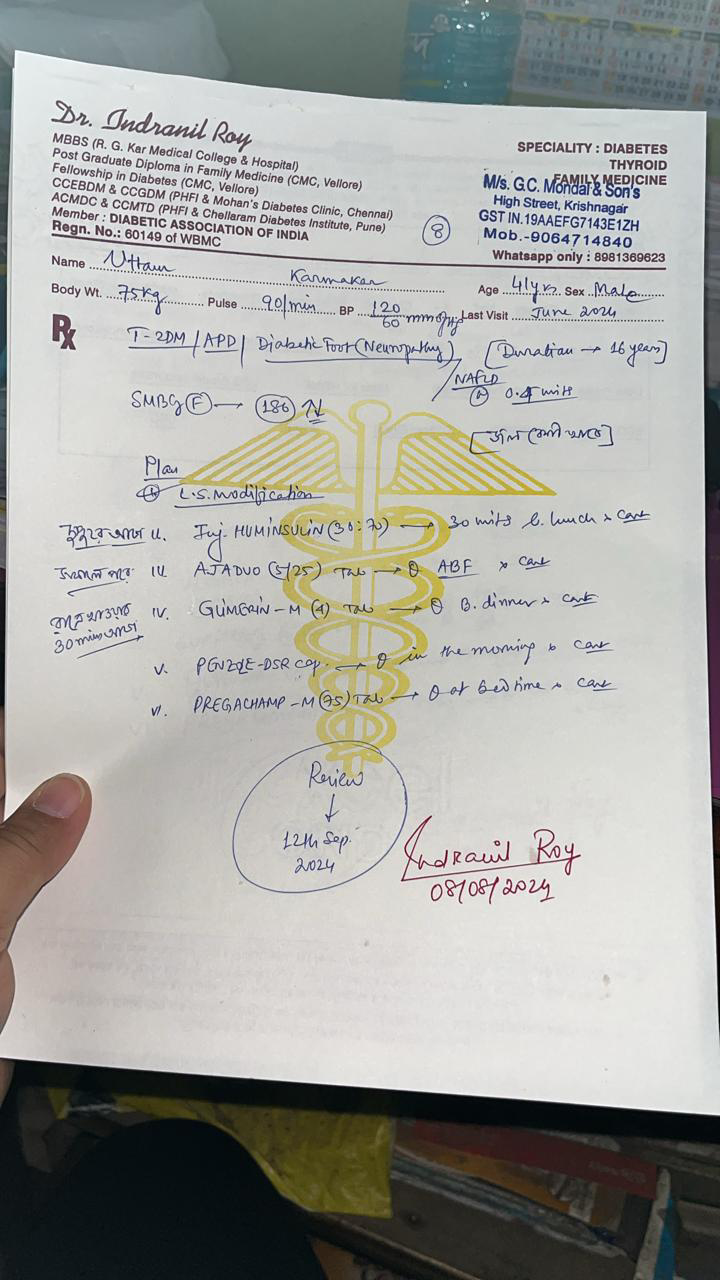 Dr. Indranil Roy
MBBS (R. G. Kar Medical College & Hospital)
Post Graduate Diploma in Family Medicine (CMC, Vellore)
Fellowship in Diabetes (CMC, Vellore)
CCEBDM & CCGDM (PHFI & Mohan's Diabetes Clinic, Chennai)
ACMDC & CCMTD (PHFI & Chellaram Diabetes Institute, Pune)
Member : DIABETIC ASSOCIATION OF INDIA
Regn. No.: 60149 of WBMC
SPECIALITY : DIABETES
THYROID
FAMILY MEDICINE
M/s. G.C. Mondal & Son's
High Street, Krishnagar
GST IN.19AAEFG7143E1ZH
Mob.-9064714840
Whatsapp only : 8981369623
8
Name Uttam Karmakar Age 41yrs Sex Male
Body Wt. 75kg Pulse 90/min BP 120/60 mm of Hg Last Visit June 2024
Rx
T-2DM / APD / Diabetic Foot (Neuropathy) [Duration → 16 years]
/ NAFLD
0.4 units
SMBG (F) → 186
Plan
L.S. Modification
দুপুরে আগে II. Inj. HUMINSULIN (30:70) → 30 units b. lunch x cont
III. AJADUO (5/25) Tab → ABF x cont
রাতে খাওয়ার 30 mins আগে IV. GLIMERIN-M (1) Tab → B. dinner x cont
V. cap. → in the morning x cont
VI. PREGACHAMP-M (75) Tab → at bedtime x cont
Review
↓
12th Sep.
2024
Indranil Roy
08/08/2024